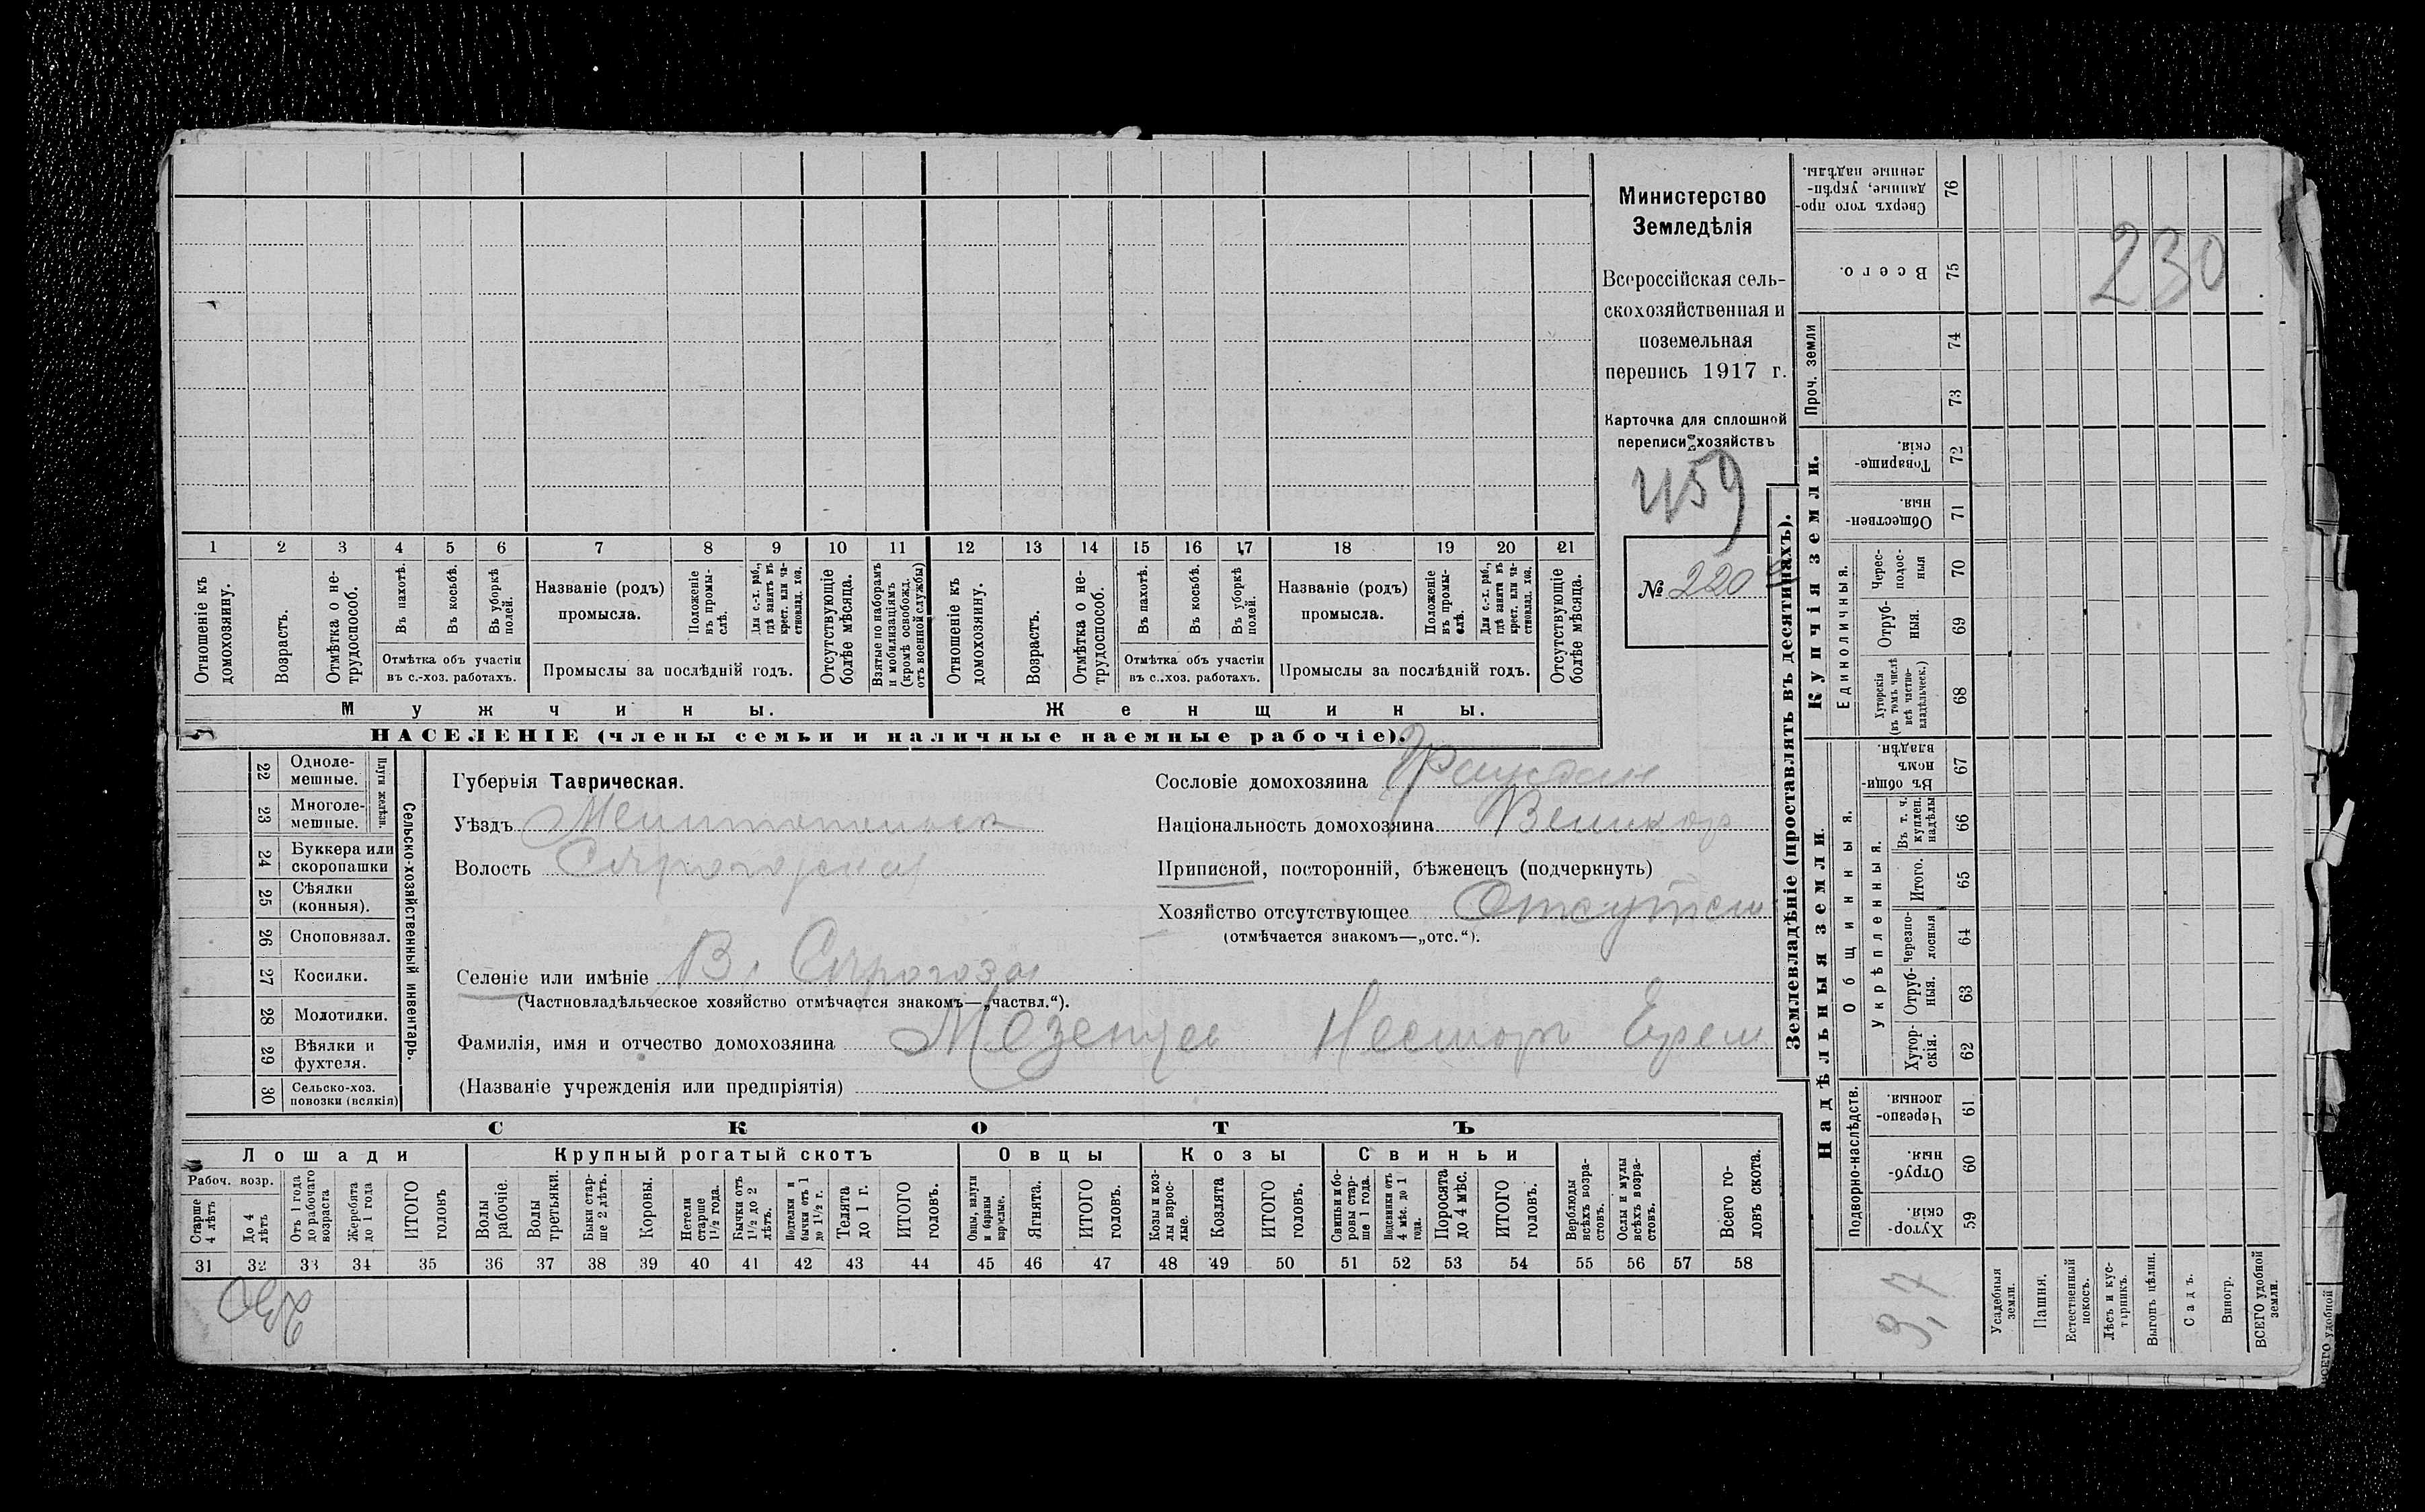 Министерство
Земледѣлія
Всероссійская сель-
скохозяйственная и
поземельная
перепись 1917 г.
Карточка для сплошной
переписи хозяйствъ
459
№ 220
1 2 3 4 5 6 7 8 9 10 11 12 13 14 15 16 17 18 19 20 21
Отношеніе къ домохозяину.
Возрастъ.
Отмѣтка о не-трудоспособ.
Въ пахотѣ.
Въ косьбѣ.
Въ уборкѣ полей.
Отмѣтка объ участіи
въ с.-хоз. работахъ.
Названіе (родъ)
промысла.
Положеніе въ промы-слѣ.
Для с.-х. раб., гдѣ занятъ въ крест. или ча-стновлад. хоз.
Промыслы за послѣдній годъ.
Отсутствующіе болѣе мѣсяца.
Взятые по наборамъ и мобилизаціямъ (кромѣ освобожд. отъ военной службы)
Отношеніе къ домохозяину.
Возрастъ.
Отмѣтка о не-трудоспособ.
Въ пахотѣ.
Въ косьбѣ.
Въ уборкѣ полей.
Отмѣтка объ участіи
въ с.-хоз. работахъ.
Названіе (родъ)
промысла.
Положеніе въ промы-слѣ.
Для с.-х. раб., гдѣ занятъ въ крест. или ча-стновлад. хоз.
Промыслы за послѣдній годъ.
Отсутствующіе болѣе мѣсяца.
Мужчины. Женщины.
НАСЕЛЕНІЕ (члены семьи и наличные наемные рабочіе).
22 Одноле-мешные.
23 Многоле-мешные.
Плуги желѣзн.
24 Буккера или скоропашки
25 Сѣялки (конныя).
26 Сноповязал.
27 Косилки.
28 Молотилки.
29 Вѣялки и фухтеля.
30 Сельско-хоз. повозки (всякія)
Сельско-хозяйственный инвентарь.
Губернія Таврическая.
Уѣздъ
Волость
Селеніе или имѣніе В. Сѣрогозы
(Частновладѣльческое хозяйство отмѣчается знакомъ—„частвл.“).
Фамилія, имя и отчество домохозяина Мезенцев Нестор Ерем
(Названіе учрежденія или предпріятія)
Сословіе домохозяина
Національность домохозяина Великор
Приписной, посторонній, бѣженецъ (подчеркнуть)
Хозяйство отсутствующее
(отмѣчается знакомъ—„отс.“).
СКОТЪ
Лошади Крупный рогатый скотъ Овцы Козы Свиньи
Рабоч. возр.
Старше 4 лѣтъ
До 4 лѣтъ
Отъ 1 года до рабочаго возраста
Жеребята до 1 года
ИТОГО головъ
Волы рабочіе.
Волы третьяки.
Быки стар-ше 2 лѣтъ.
Коровы.
Нетели старше 1½ года.
Бычки отъ 1½ до 2 лѣтъ.
Подтелки и бычки отъ 1 до 1½ г.
Телята до 1 г.
ИТОГО головъ.
Овцы, валухи и бараны взрослые.
Ягнята.
ИТОГО головъ.
Козы и коз-лы взрос-лые.
Козлята
ИТОГО головъ.
Свиньи и бо-ровы стар-ше 1 года.
Подсвинки отъ 4 мѣс. до 1 года.
Поросята до 4 мѣс.
ИТОГО головъ.
Верблюды всѣхъ возра-стовъ.
Ослы и мулы всѣхъ возра-стовъ.
Всего го-ловъ скота.
31 32 33 34 35 36 37 38 39 40 41 42 43 44 45 46 47 48 49 50 51 52 53 54 55 56 57 58
230
Землевладѣніе (проставлять въ десятинахъ).
Надѣльныя земли. Купчія земли. Проч. земли
Подворно-наслѣдств.
Общинныя.
Укрѣпленныя.
Единоличныя.
Хутор-скія. 59
Отруб-ныя. 60
Черезпо-лосныя 61
Хутор-скія. 62
Отруб-ныя. 63
Черезпо-лосныя 64
Итого. 65
Въ т. ч. куплен. надѣлы 66
Въ общин-номъ владѣн. 67
Хуторскія (въ томъ числѣ всѣ частно-владѣльческ.) 68
Отруб-ныя. 69
Черес-полос-ныя 70
Обществен-ныя. 71
Товарище-скія. 72
73
74
Всего. 75
Сверхъ того про-данные, укрѣп-ленные надѣлы. 76
230
Усадебныя земли.
Пашня.
Естественный покосъ.
Лѣсъ и кус-тарникъ.
Выгонъ цѣлин.
Садъ.
Виногр.
ВСЕГО удобной земли.